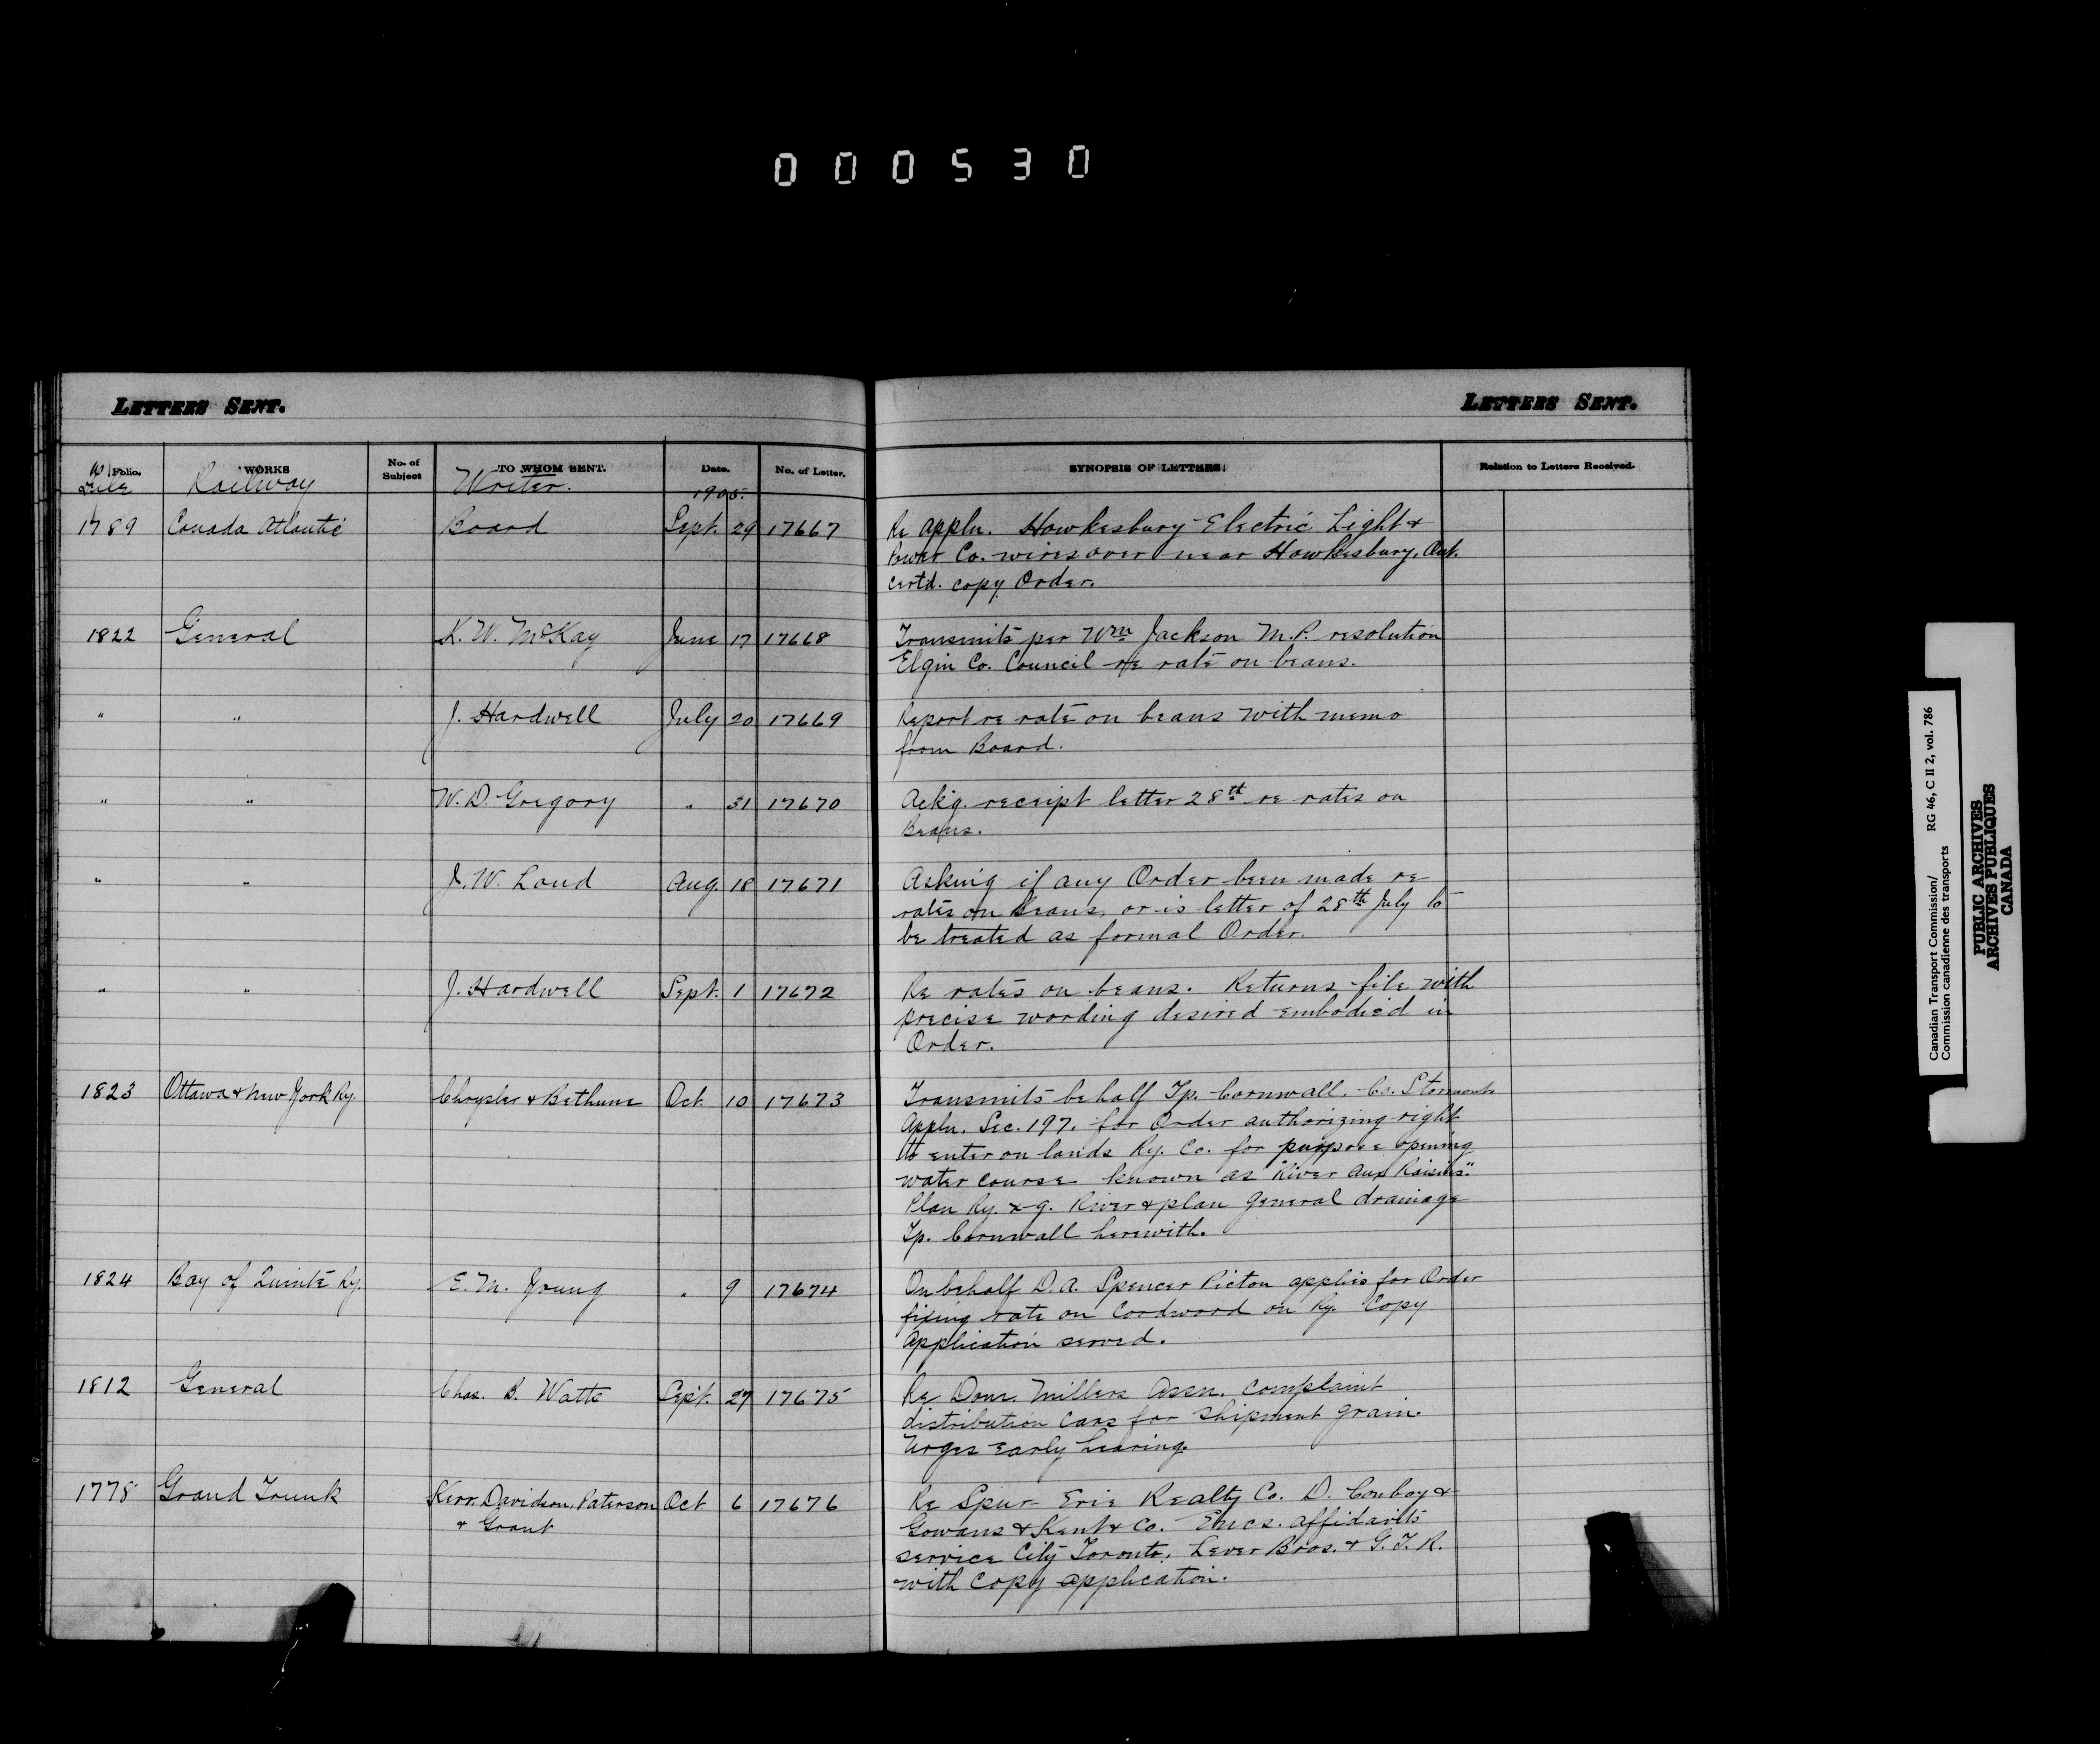 000530
LETTERS SENT.
LETTERS SENT.
Folio. WORKS No. of Subject TO WHOM SENT. Date. No. of Letter. SYNOPSIS OF LETTERS. Relation to Letters Received.
File Railway Writer. 1905.
1789 Canada Atlantic Board Sept. 29 17667 Re appln. Hawkesbury Electric Light &
Power Co. wires over near Hawkesbury, Ont.
Certd. copy Order.
1822 General K. W. McKay June 17 17668 Transmits per Wm Jackson M.P. resolution
Elgin Co. Council re rate on beans.
" " J. Hardwell July 20 17669 Report re rate on beans with memo
from Board.
" " W. D. Gregory " 31 17670 Ackg. receipt letter 28th re rates on
Beans.
" " J. W. Loud Aug. 18 17671 Asking if any Order been made re
rates on beans, or is letter of 28th July to
be treated as formal Order.
" " J. Hardwell Sept. 1 17672 Re rates on beans. Returns file with
precise wording desired embodied in
Order.
1823 Ottawa & New York Ry. Chrysler & Bethune Oct. 10 17673 Transmits behalf Tp. Cornwall, Co. Stormont
Appln. Sec. 197. for Order authorizing right
to enter on lands Ry. Co. for purpose opening
water course known as "River Aux Raisins".
Plan Ry. x-g. River & plan General drainage
Tp. Cornwall herewith.
1824 Bay of Quinte Ry. E. M. Young " 9 17674 On behalf D. A. Spencer Picton applies for Order
fixing rate on Cordwood on Ry. Copy
Application served.
1812 General Chas. B. Watts Sept. 27 17675 Re Dom. Millers Assn. complaint
distribution Cars for shipment grain.
Urges early hearing.
1778 Grand Trunk Kerr, Davidson, Paterson Oct. 6 17676 Re Spur Erie Realty Co. D. Conboy &
& Grant Gowans & Kent & Co. Encs. affidavits
service City Toronto, Lever Bros. & G. T. R.
with Copy application.
Canadian Transport Commission/ RG 46, C II 2, vol. 786
Commission canadienne des transports
PUBLIC ARCHIVES
ARCHIVES PUBLIQUES
CANADA